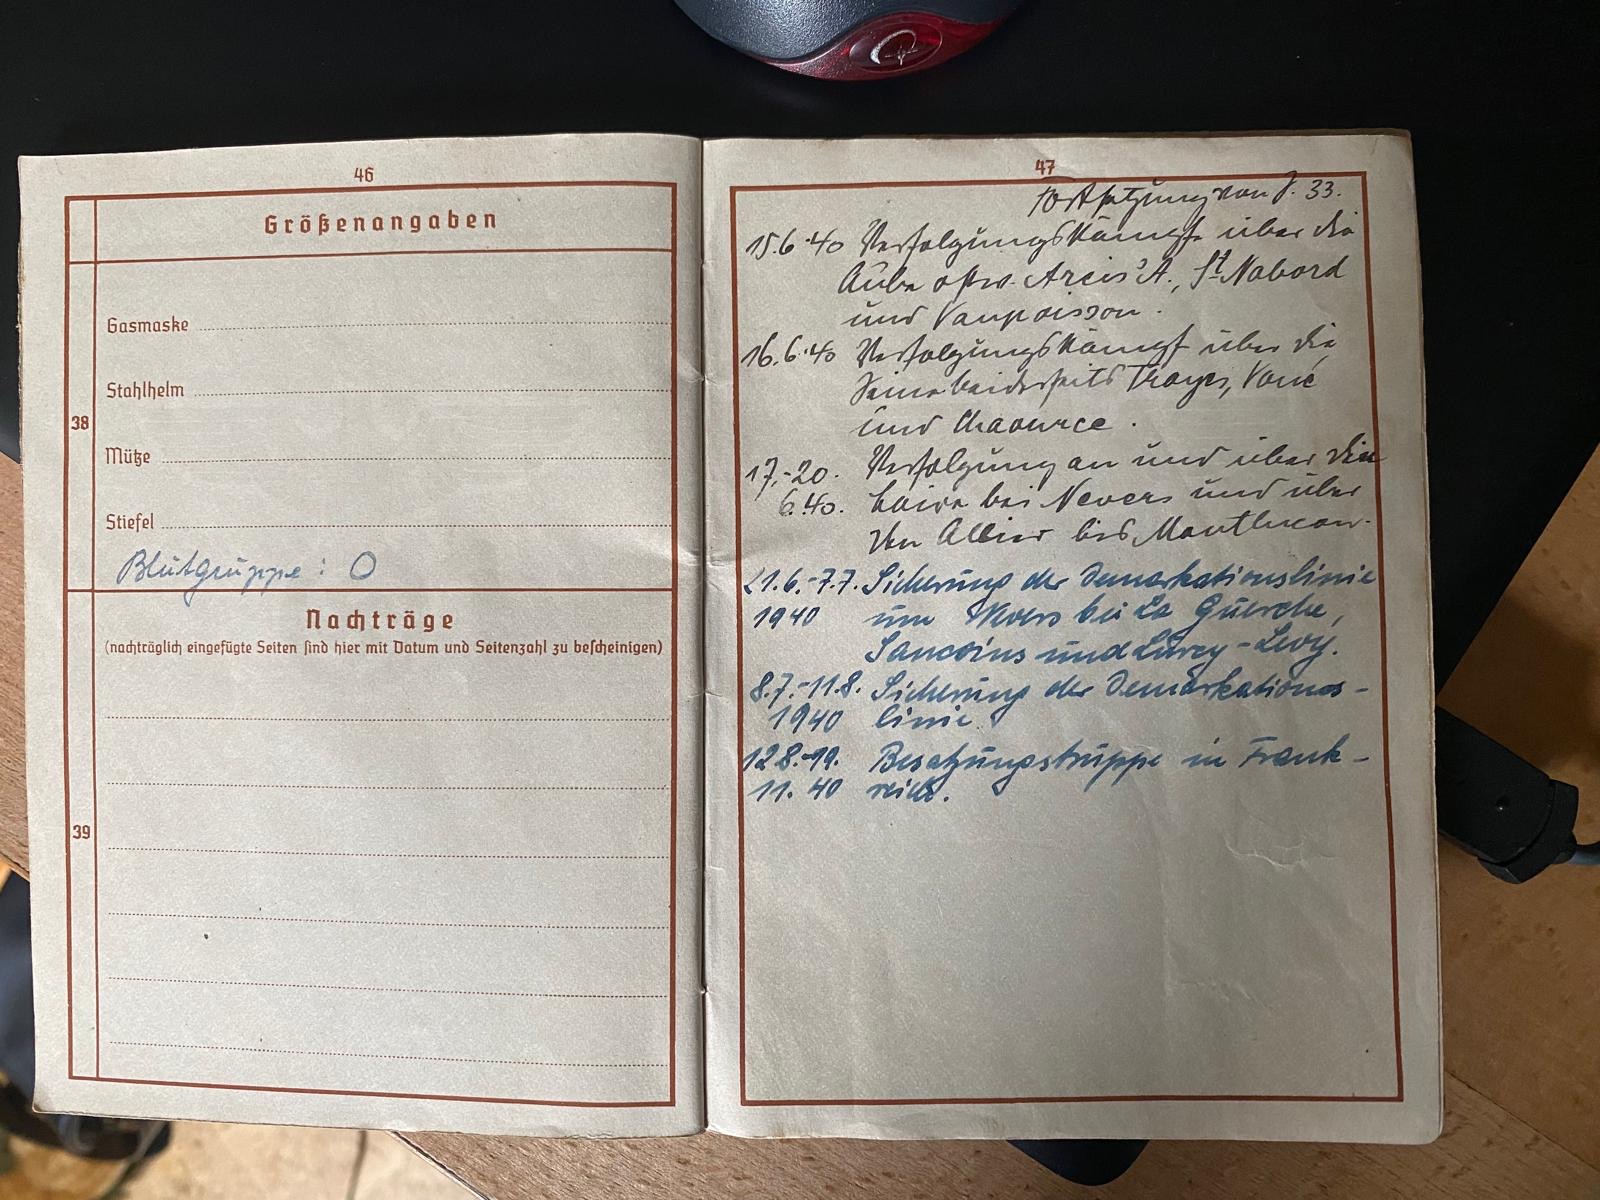 46
Größenangaben
38
Gasmaske
Stahlhelm
Mütze
Stiefel
Blutgruppe: O
39
Nachträge
(nachträglich eingefügte Seiten sind hier mit Datum und Seitenzahl zu bescheinigen)
47
Fortsetzung von S. 33.
15.6.40 Verfolgungskämpfe über die
Aube ostw. Arcis'A., St. Nabord
und Vaupoisson.
16.6.40 Verfolgungskämpf über die
Seine beiderseits Troyes,
und Chaource.
17.-20. Verfolgung an und über die
6.40. Loire bei Nevers und über
den Allier bis Montlucon.
21.6.-7.7. Sicherung der Demarkationslinie
1940 um Nevers bei La Guerche,
Sancoins und Lurcy-Levy.
8.7.-11.8. Sicherung der Demarkations-
1940 linie.
12.8.-19. Besatzungstruppe in Frank-
11.40 reich.